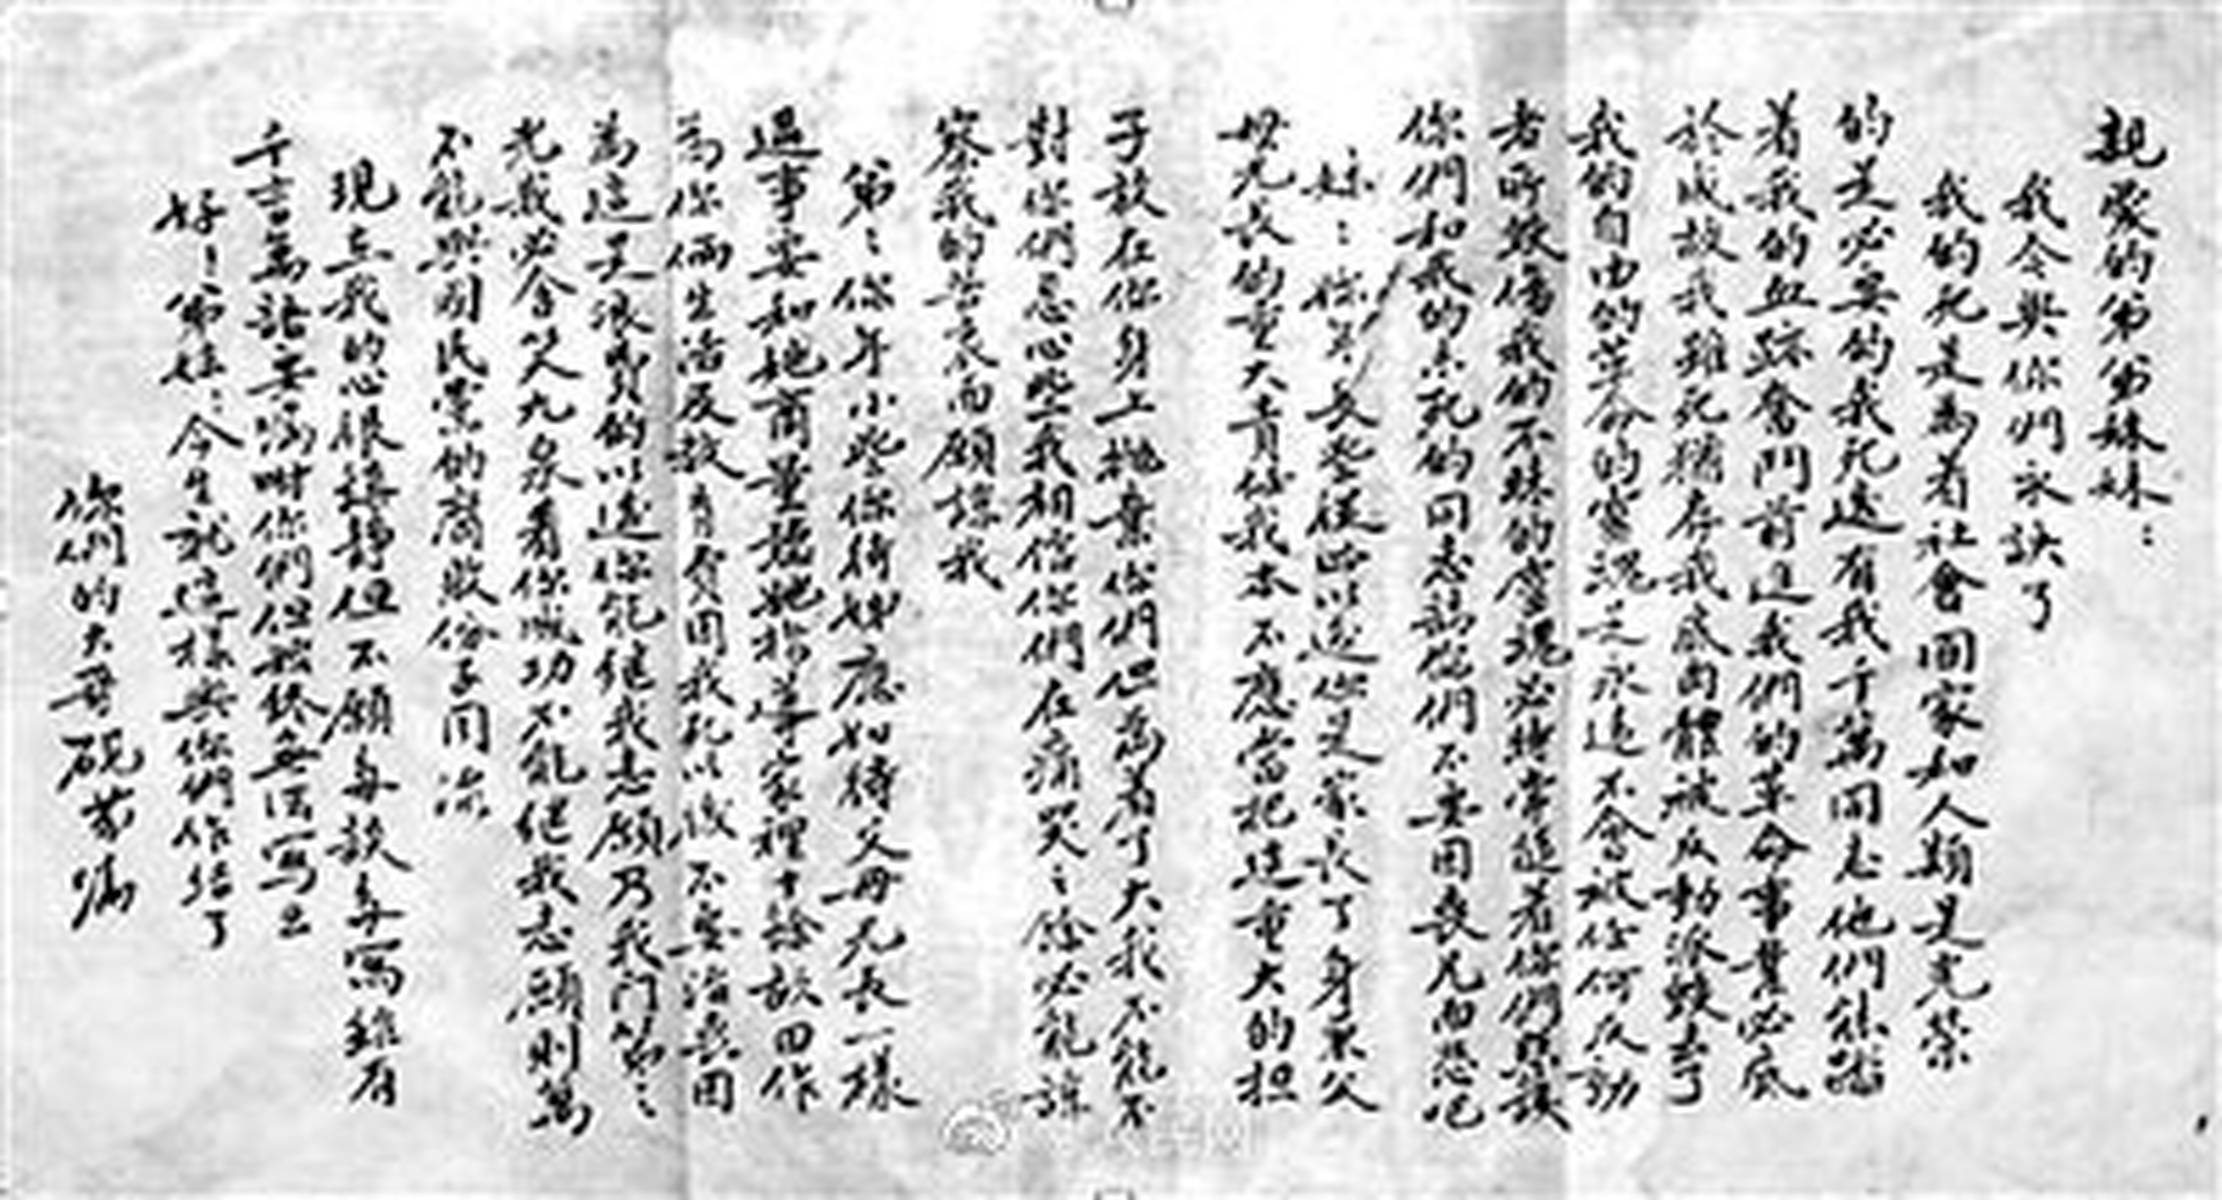 親愛的弟弟妹妹：
我今與你們永訣了
我的死是為着社會国家和人類是光荣
的是必要的我死後有我千萬同志他們能踏
着我的血跡奮鬥前進我們的革命事業必底
於成故我雖死猶存我底肉體被反動派毀去了
我的自由的革命的靈魂是永遠不會被任何反動
者所毀傷我的不昧的靈魂必時常随着你們照護
你們和我的未死的同志請你們不要因喪兄而悲吧
妹：你年長些從此以後你是家長了身兼父
母兄長的重大責任我本不應當把這重大的担
子放在你身上抛棄你們但為着了大我不能不
對你們忍心些我相信你們在痛哭之餘必能諒
察我的苦衷而願諒我
弟：你年小些你待姊應如待父母兄長一樣
遇事要和她商量聽她指導家裡十餘畝田作
為你倆生活及教育費因我死以後不要治喪因
為這是浪費的以後你能继我志願乃我門第之
光我必含笑九泉看你成功不能继我志願則萬
不能與国民黨的腐敗份子同流
現在我的心很鎮靜但不願多談多寫雖有
千言萬語要嘱咐你們但始終無法寫出
好！弟妹：今生就這樣與你們作结了
你們的大哥硯農嘱